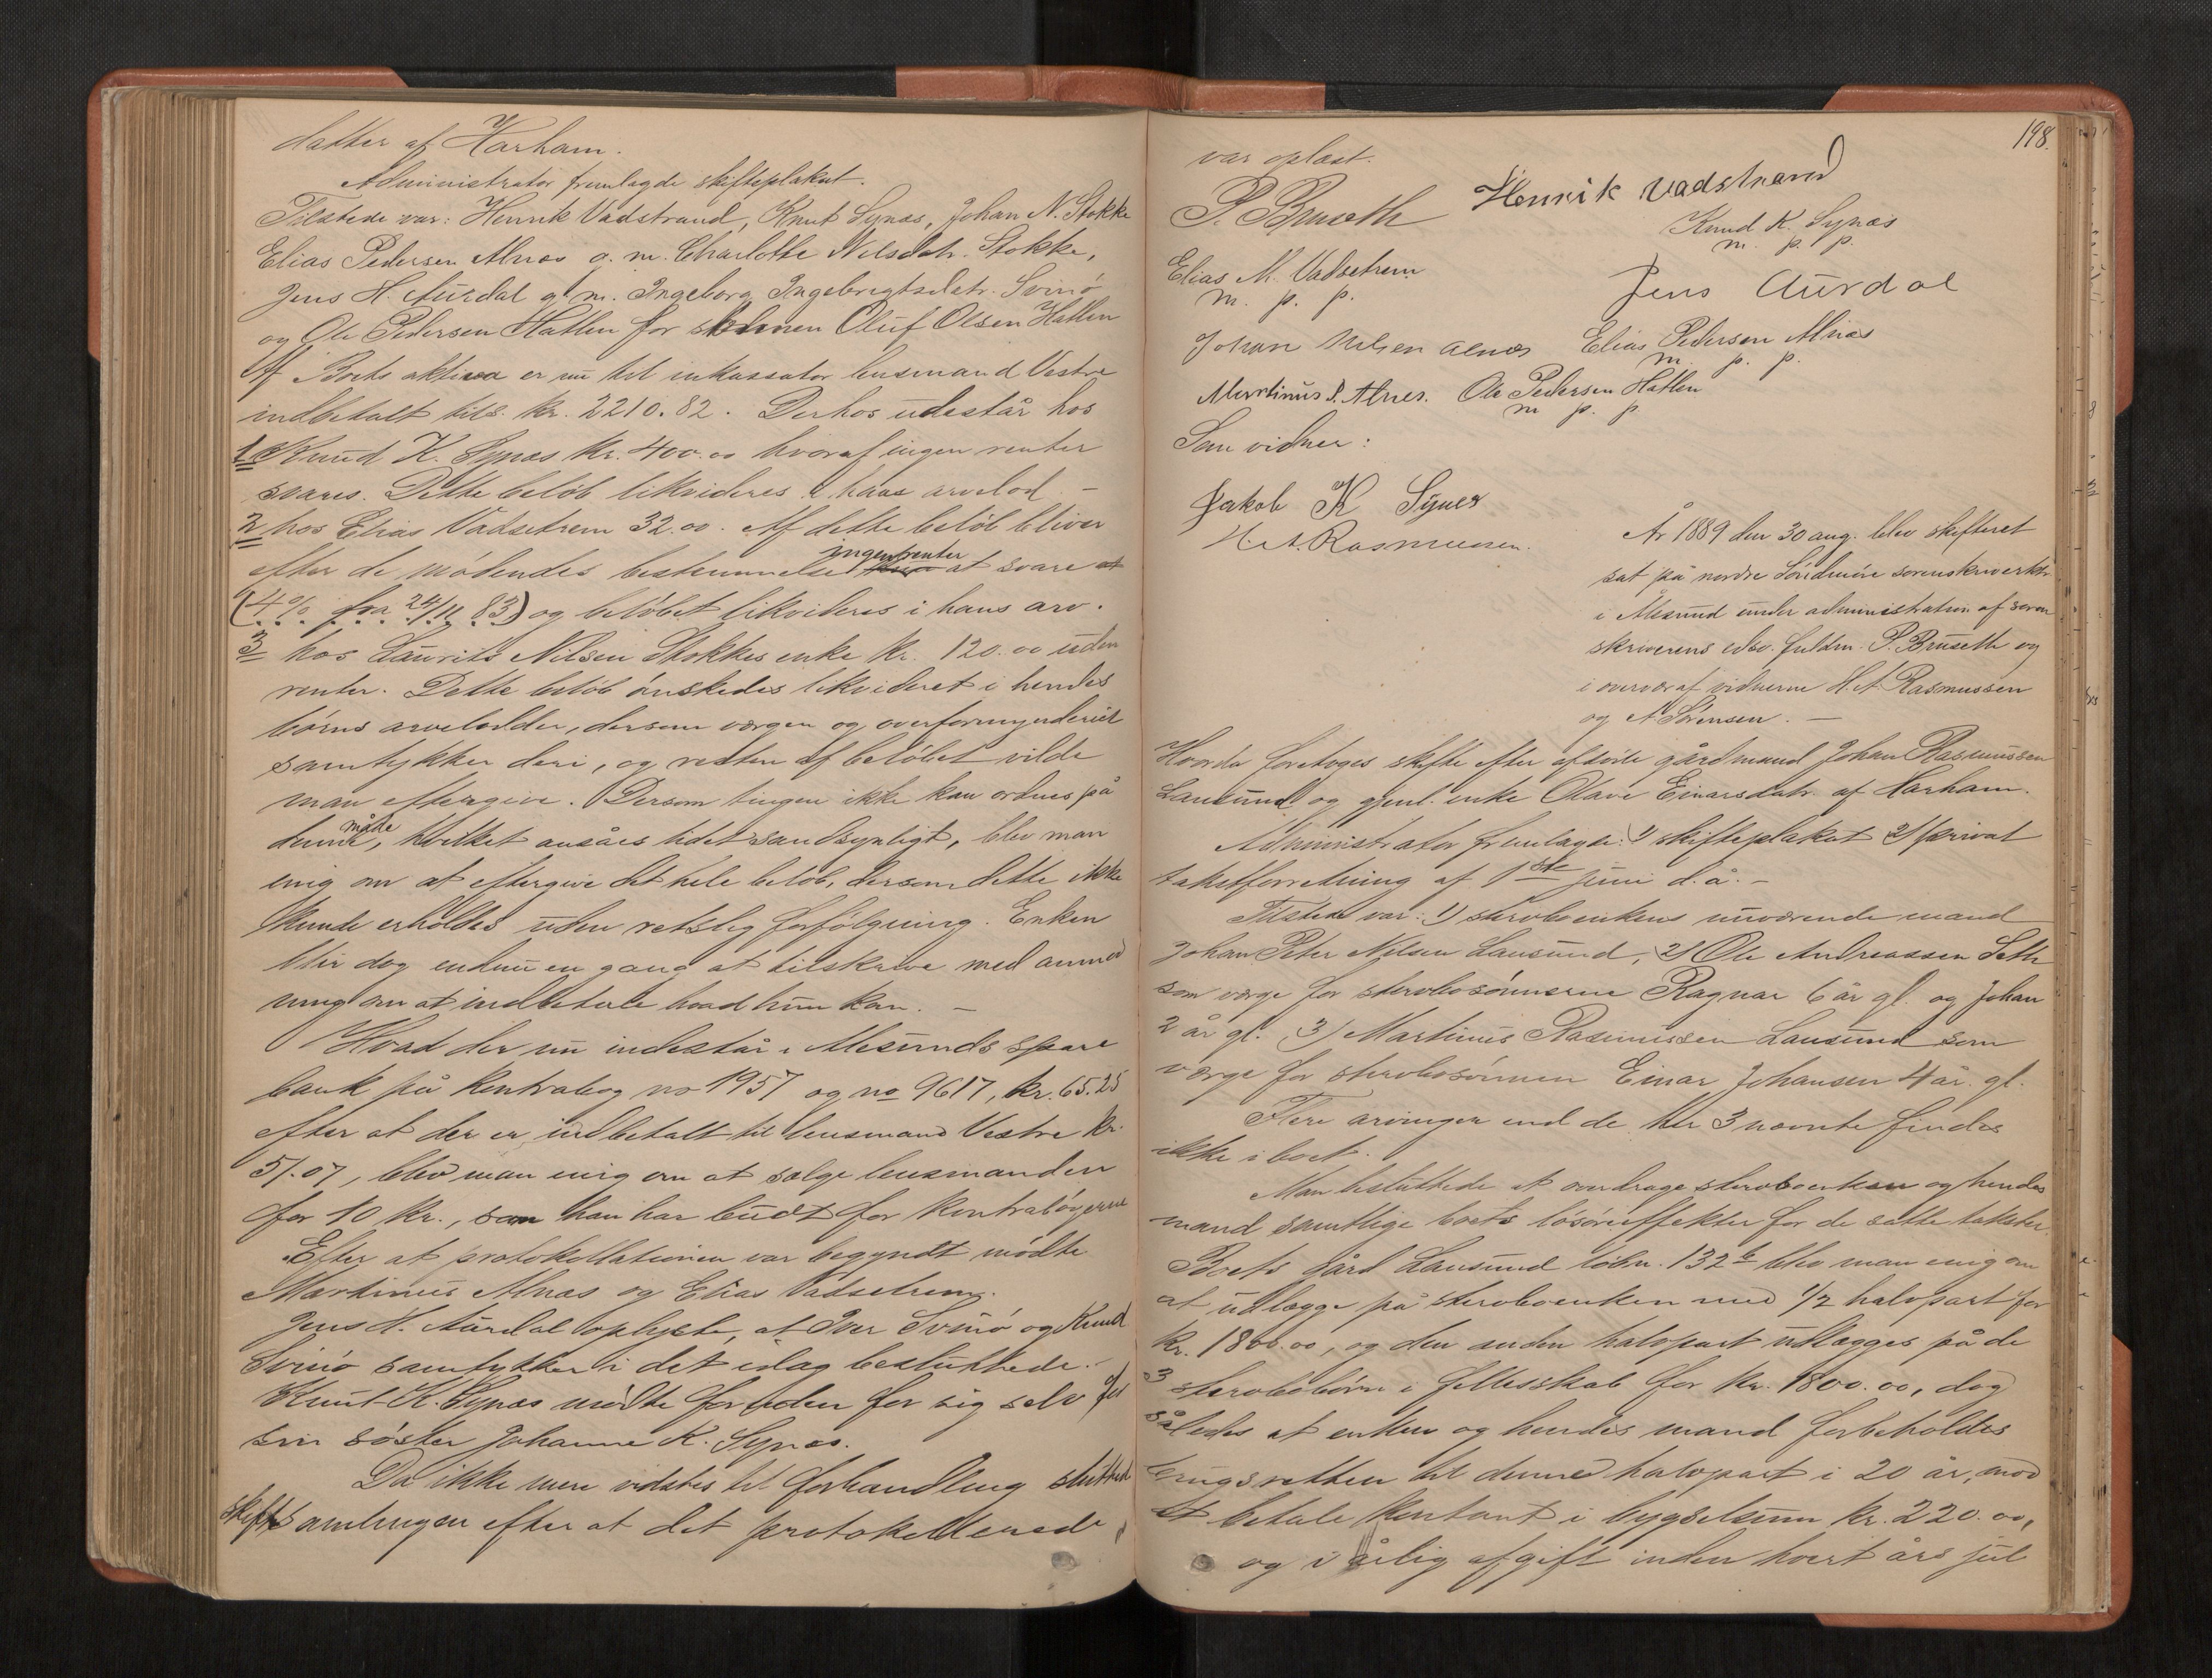 datter af Harham.
Administrator fremlagde skifteplakat.
Tilstede var: Henrik Vadstrand, Knut Synæs, Johan N. Stokke
Elias Pedersen Alnæs g. m. Charlotte Nilsdatr. Stokke,
Jens H. Aurdal g. m. Ingeborg Ingebrigtsdatr. Svinö
og Ole Pedersen Hatlen for sønnen Oluf Olsen Hatlen
Af Boets aktiva er nu til inkassator lensmand Vestre
indbetalt tils. kr. 2210.82. Derhos udestår hos
1 Knud K. Synæs kr. 400.00 hvoraf ingen renter
svares. Dette beløb likvideres i hans arvelod. –
2 hos Elias Vadsetrem 32.00. Af dette beløb bliver
ingen renter
efter de mødendes bestemmelse at svare
(4% fra 24/11 83) og beløbet likvideres i hans arv.
3 hos Laurits Nilsen Stokkes enke kr. 120.00 uden
renter. Dette beløb ønskedes likvideret i hendes
børns arvelodder, dersom værgen og overformynderiet
samtykker deri, og resten af beløbet vilde
man eftergive. Dersom tingen ikke kan ordnes på
måde
denne, hvilket ansåes lidet sandsynligt, blev man
enig om at eftergive det hele beløb, dersom dette ikke
kunde erholdes uden retslig forfølgning. Enken
blir dog endnu en gang at tilskrive med anmod
ning om at indbetale hvad hun kan. –
Hvad der nu indestår i Alesunds spare
bank på kontrabog no 1957 og no 9617, kr. 65.25
efter at der er indbetalt til lensmand Vestre kr.
51.07, blev man enig om at sælge lensmanden
for 10 kr., som han har budt for kontrabøgerne
Efter at protokollationen var begyndt mødte
Martinus Alnæs og Elias Vadsetrem.
Jens H. Aurdal oplyste, at Iver Svinö og Knud
Svinö samtykker i det idag besluttede. –
Knut K. Synæs mødte foruden for sig selv for
sin søster Johanne K. Synæs.
Da ikke mere vidstes til forhandling slutted
skiftesamlingen efter at det protokollerede
198.
var oplæst.
P. Bruseth Henrik Vadstrand
Knud K. Synæs
m. p. p.
Elias M. Vadsetrem
m. p. p.
Jens Aurdal
Johan Nilsen Alnæs Elias Pedersen Alnæs
m. p. p.
Martinus P. Alnes. Ole Pedersen Hatlen
m p. p
Som vidner:
Jakob K Synes
H. A. Rasmussen.
År 1889 den 30 aug. blev skifteret
sat på nordre Söndmöre sorenskriverktr.
i Ålesund under administration af soren
skriverens edsv. fuldm. P. Bruseth og
i overvær af vidnerne H. A. Rasmussen
og A Sörensen. –
Hvorda foretoges skifte efter afdøde gårdmand Johan Rasmussen
Lausund og gjenl. enke Olave Einarsdatr. af Harham.
Administrator fremlagde: 1) skifteplakat 2) privat
takstforretning af 1ste juni d. å. –
Tilstede var: 1) sterboenkens nuværende mand
Johan Peter Nilsen Lausund, 2) Ole Andreassen Seth
som værge for sterbosønnerne Ragnar 6 år gl. og Johan
2 år gl. 3) Martinus Rasmussen Lausund som
værge for sterbosønnen Einar Johansen 4 år. gl.
Flere arvinger end de her 3 nævnte findes
ikke i boet.
Man besluttede at overdrage sterboenken og hendes
mand samtlige boets løsøreeffekter for de satte takster.
Boets gård Lausund löbn. 132 b blev man enig om
at udlægge på sterboenken med 1/2 halvpart for
kr. 1800.00, og den anden halvpart udlægges på de
3 sterbobørn i fællesskab for kr. 1800.00, dog
således at enken og hendes mand forbeholdes
brugsretten til denne halvpart i 20 år, mod
at betale kontant i bygselsum kr. 220.00,
og i årlig afgift inden hvert års jul